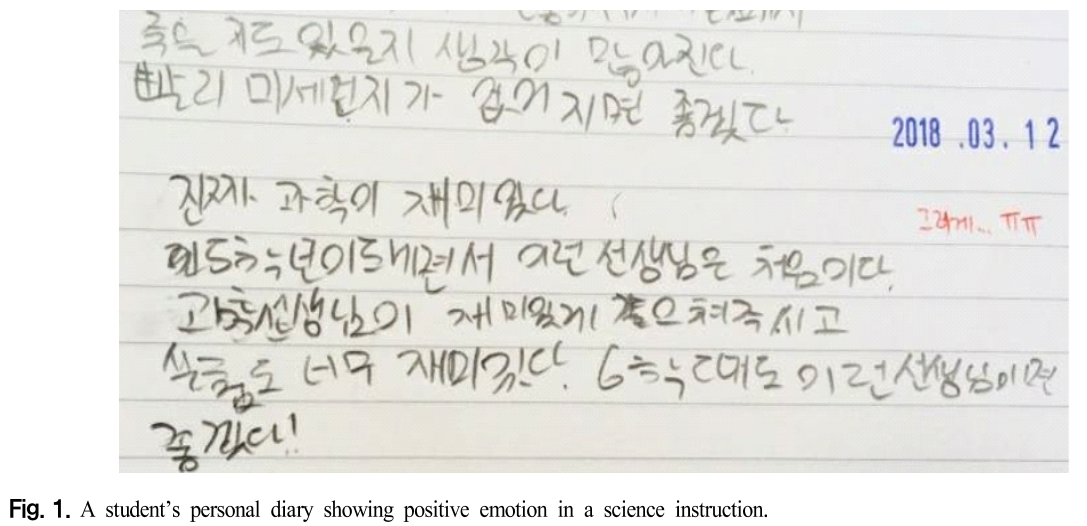 죽을 지도 있을지 생각이 많아진다.
빨리 미세먼지가 없어지면 좋겠다
2018 .03. 12
진짜 과학이 재미있다
그러게... ㅠㅠ
5학년이 되면서 이런 선생님은 처음이다.
과학선생님이 재미있게 가르쳐주시고
실험도 너무 재미있다. 6학년때도 이런선생님이면
좋겠다!
Fig. 1. A student's personal diary showing positive emotion in a science instruction.